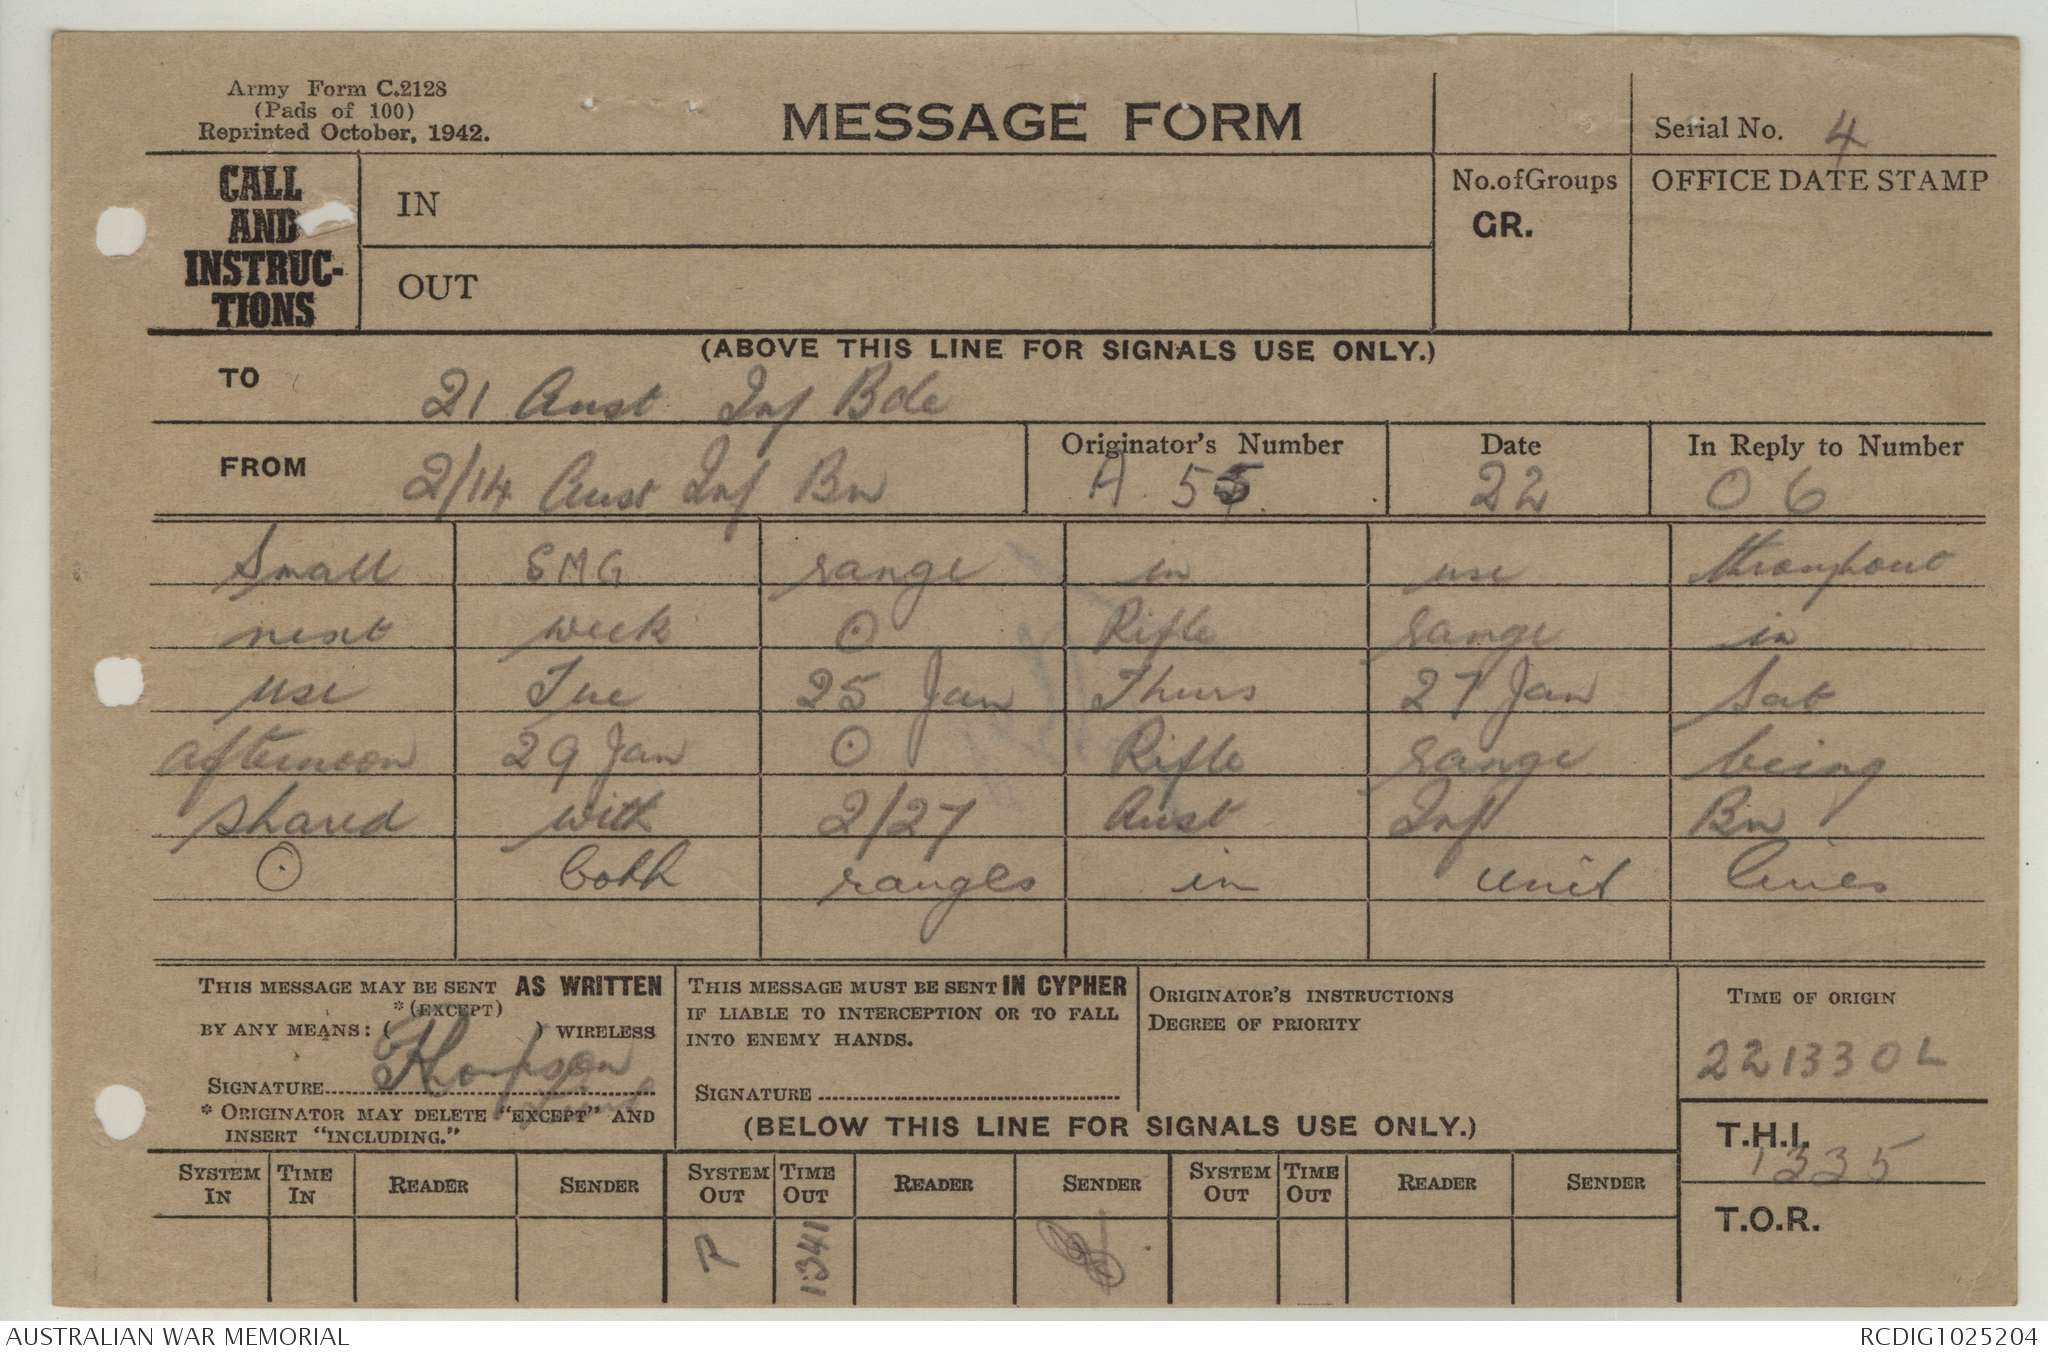 Army Form C.2128
(Pads of 100)
Reprinted October, 1942.
MESSAGE FORM
Serial No. 4
CALL AND INSTRUC-TIONS
IN
OUT
No. of Groups
GR.
OFFICE DATE STAMP
(ABOVE THIS LINE FOR SIGNALS USE ONLY.)
TO 21 Aust Inf Bde
FROM 2/14 Aust Inf Bn
Originator's Number A 55
Date 22
In Reply to Number O 6
Small SMG range in use throughout
next week ⊙ Rifle range in
use Tue 25 Jan Thurs 27 Jan Sat
afternoon 29 Jan ⊙ Rifle range being
shared with 2/27 Aust Inf Bn
⊙ both ranges in unit lines
THIS MESSAGE MAY BE SENT AS WRITTEN
*(EXCEPT)
BY ANY MEANS: ( ) WIRELESS
SIGNATURE Thompson
* ORIGINATOR MAY DELETE "EXCEPT" AND
INSERT "INCLUDING."
THIS MESSAGE MUST BE SENT IN CYPHER
IF LIABLE TO INTERCEPTION OR TO FALL
INTO ENEMY HANDS.
SIGNATURE
ORIGINATOR'S INSTRUCTIONS
DEGREE OF PRIORITY
TIME OF ORIGIN
221330L
(BELOW THIS LINE FOR SIGNALS USE ONLY.)
T.H.I.
1335
T.O.R.
SYSTEM IN TIME IN READER SENDER SYSTEM OUT TIME OUT READER SENDER SYSTEM OUT TIME OUT READER SENDER
P 1341
AUSTRALIAN WAR MEMORIAL
RCDIG1025204